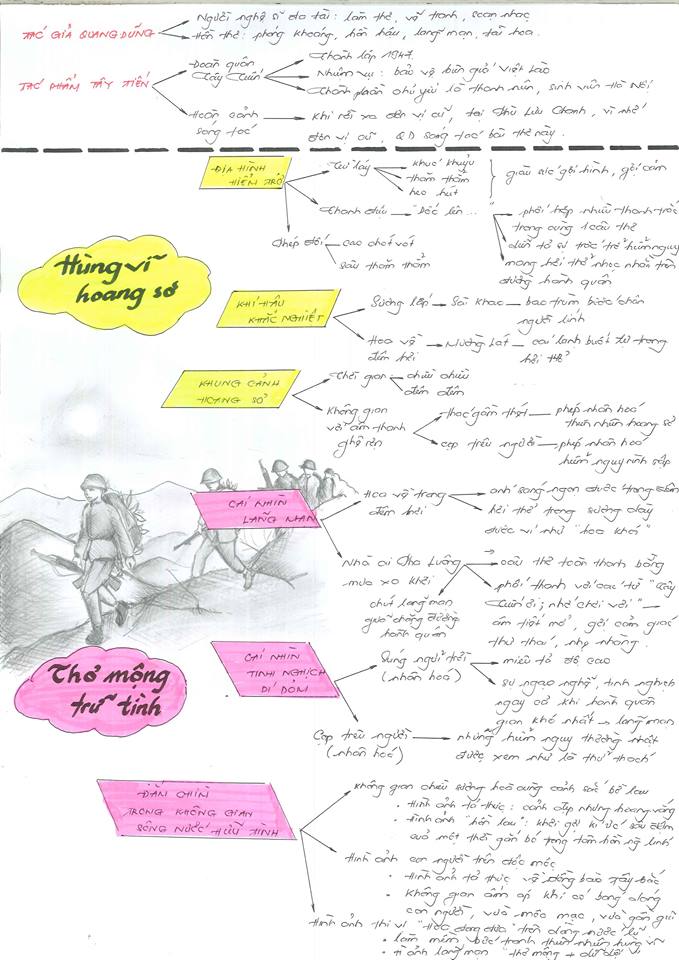 TÁC GIẢ QUANG DŨNG
Người nghệ sĩ đa tài: làm thơ, vẽ tranh, soạn nhạc
Hồn thơ: phóng khoáng, hồn hậu, lãng mạn, tài hoa.
TÁC PHẨM TÂY TIẾN
Đoàn quân
Tây Tiến
Thành lập 1947.
Nhiệm vụ: bảo vệ biên giới Việt Lào
Thành phần chủ yếu là thanh niên, sinh viên Hà Nội
Hoàn cảnh
sáng tác
Khi rời xa đơn vị cũ, tại Phù Lưu Chanh, vì nhớ
đơn vị cũ, QD sáng tác bài thơ này.
ĐỊA HÌNH
HIỂM TRỞ
Từ láy
khúc khuỷu
thăm thẳm
heo hút
giàu sức gợi hình, gợi cảm
Thanh điệu
"Dốc lên..."
phối hợp nhiều thanh trắc
trong cùng 1 câu thơ
diễn tả sự trắc trở hiểm nguy
mang hơi thở nhọc nhằn trên
đường hành quân
Phép đối
cao chót vót
sâu thăm thẳm
Hùng vĩ
hoang sơ
KHÍ HẬU
KHẮC NGHIỆT
Sương lấp
Sài Khao
bao trùm bước chân
người lính
Hoa về
đêm hơi
Mường Lát
cái lạnh buốt từ trong
hơi thở
KHUNG CẢNH
HOANG SƠ
Thời gian
chiều chiều
đêm đêm
Không gian
với âm thanh
ghê rợn
thác gầm thét
phép nhân hoá
thiên nhiên hoang sơ
cọp trêu người
phép nhân hoá
hiểm nguy rình rập
CÁI NHÌN
LÃNG MẠN
Hoa về trong
đêm hơi
ánh sáng ngọn đuốc trong đêm
hơi thở trong sương dày
được ví như "hoa khói"
Nhà ai Pha Luông
mưa xa khơi
chút lãng mạn
giữa chặng đường
hành quân
câu thơ toàn thanh bằng
phối thanh với các từ "Tây
Tiến ơi; nhớ chơi vơi"
âm tiết mở, gợi cảm giác
thư thái, nhẹ nhàng.
CÁI NHÌN
TINH NGHỊCH
DÍ DỎM
Súng ngửi trời
(nhân hoá)
miêu tả độ cao
sự ngạo nghễ, tinh nghịch
ngay cả khi hành quân
gian khó nhất → lãng mạn
Cọp trêu người
(nhân hoá)
những hiểm nguy thường nhật
được xem như là thử thách
Thơ mộng
trữ tình
ĐẮM CHÌM
TRONG KHÔNG GIAN
SÔNG NƯỚC HỮU TÌNH
Không gian chiều sương hoà cùng cảnh sắc bờ lau
Hình ảnh tả thực: cảnh đẹp nhưng hoang vắng
Hình ảnh "hồn lau": khơi gợi kí ức sâu đậm
của một thời gắn bó trong tâm hồn ng lính
Hình ảnh con người trên độc mộc
Hình ảnh tả thực về đồng bào Tây Bắc
Không gian ấm áp khi có bóng dáng
con người, vừa mộc mạc, vừa gần gũi
Hình ảnh thi vị "Hoa đong đưa" trên dòng nước lũ
làm mềm bức tranh thiên nhiên hùng vĩ
h/ảnh lãng mạn "thơ mộng + dữ dội"